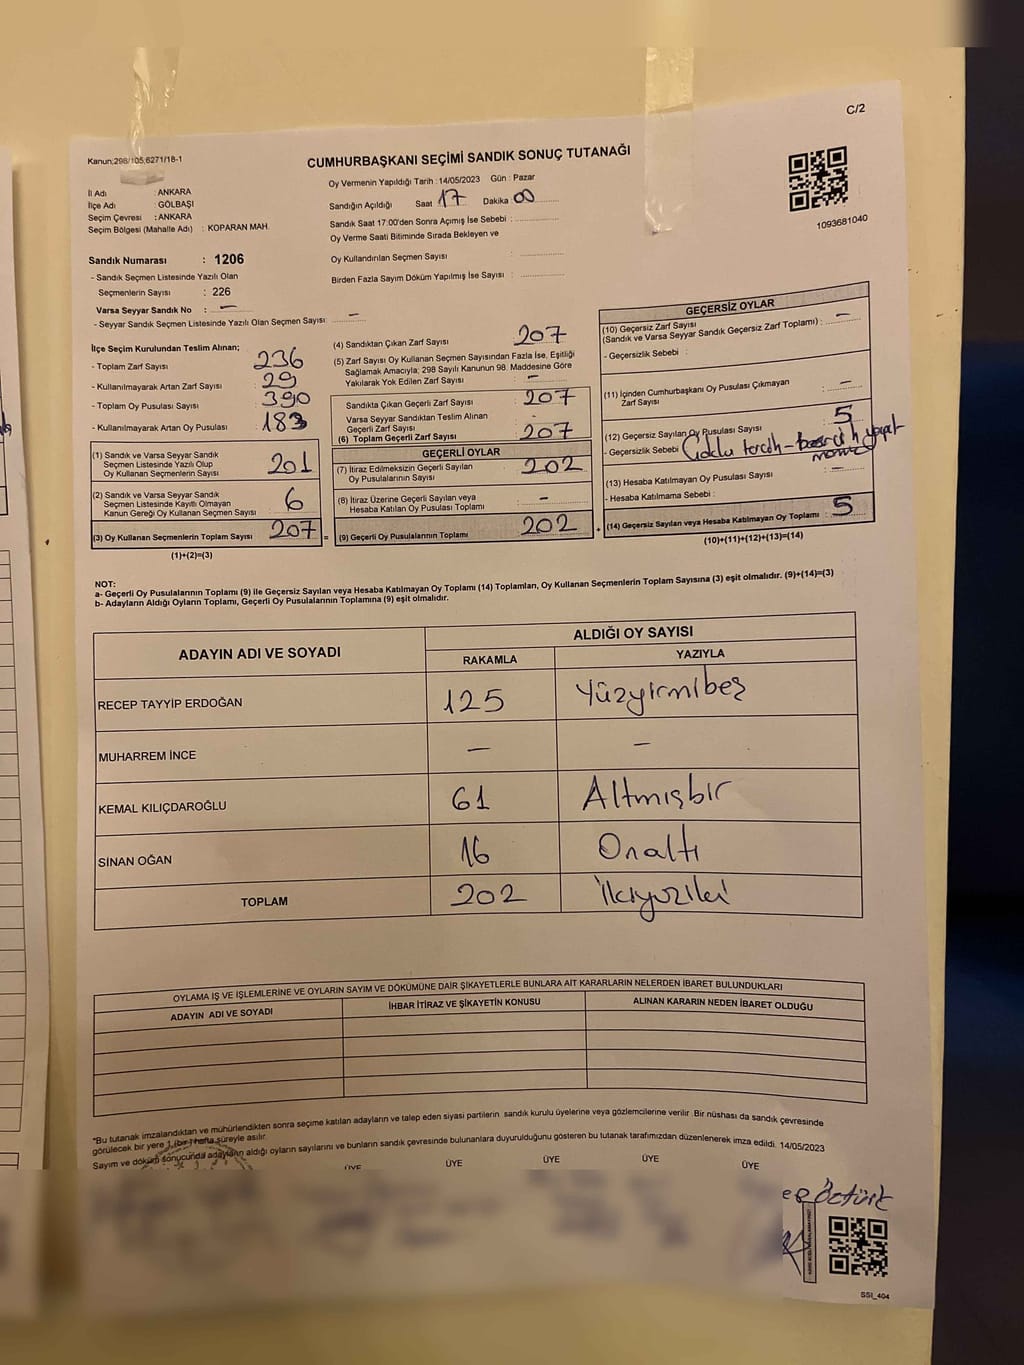 C/2
Kanun:298/105;6271/18-1
CUMHURBAŞKANI SEÇİMİ SANDIK SONUÇ TUTANAĞI
İl Adı : ANKARA
İlçe Adı : GÖLBAŞI
Seçim Çevresi : ANKARA
Seçim Bölgesi (Mahalle Adı) : KOPARAN MAH.
Oy Vermenin Yapıldığı Tarih : 14/05/2023 Gün : Pazar
Sandığın Açıldığı Saat 17 Dakika 00
Sandık Saat 17:00'den Sonra Açımış İse Sebebi :
Oy Verme Saati Bitiminde Sırada Bekleyen ve
Oy Kullandırılan Seçmen Sayısı :
Birden Fazla Sayım Döküm Yapılmış İse Sayısı :
1093681040
Sandık Numarası : 1206
- Sandık Seçmen Listesinde Yazılı Olan
Seçmenlerin Sayısı : 226
Varsa Seyyar Sandık No : —
- Seyyar Sandık Seçmen Listesinde Yazılı Olan Seçmen Sayısı : —
İlçe Seçim Kurulundan Teslim Alınan;
- Toplam Zarf Sayısı : 236
- Kullanılmayarak Artan Zarf Sayısı : 29
- Toplam Oy Pusulası Sayısı : 390
- Kullanılmayarak Artan Oy Pusulası : 183
(1) Sandık ve Varsa Seyyar Sandık
Seçmen Listesinde Yazılı Olup
Oy Kullanan Seçmenlerin Sayısı : 201
(2) Sandık ve Varsa Seyyar Sandık
Seçmen Listesinde Kayıtlı Olmayan
Kanun Gereği Oy Kullanan Seçmen Sayısı : 6
(3) Oy Kullanan Seçmenlerin Toplam Sayısı : 207 =
(1)+(2)=(3)
(4) Sandıktan Çıkan Zarf Sayısı : 207
(5) Zarf Sayısı Oy Kullanan Seçmen Sayısından Fazla İse, Eşitliği
Sağlamak Amacıyla; 298 Sayılı Kanunun 98. Maddesine Göre
Yakılarak Yok Edilen Zarf Sayısı : —
Sandıkta Çıkan Geçerli Zarf Sayısı : 207
Varsa Seyyar Sandıktan Teslim Alınan
Geçerli Zarf Sayısı : -
(6) Toplam Geçerli Zarf Sayısı : 207
GEÇERLİ OYLAR
(7) İtiraz Edilmeksizin Geçerli Sayılan
Oy Pusulalarının Sayısı : 202
(8) İtiraz Üzerine Geçerli Sayılan veya
Hesaba Katılan Oy Pusulası Toplamı : —
(9) Geçerli Oy Pusulalarının Toplamı : 202 +
GEÇERSİZ OYLAR
(10) Geçersiz Zarf Sayısı
(Sandık ve Varsa Seyyar Sandık Geçersiz Zarf Toplamı) : —
- Geçersizlik Sebebi :
(11) İçinden Cumhurbaşkanı Oy Pusulası Çıkmayan
Zarf Sayısı : —
(12) Geçersiz Sayılan Oy Pusulası Sayısı : 5
- Geçersizlik Sebebi Çoklu tercih -
(13) Hesaba Katılmayan Oy Pusulası Sayısı : —
- Hesaba Katılmama Sebebi :
(14) Geçersiz Sayılan veya Hesaba Katılmayan Oy Toplamı : 5
(10)+(11)+(12)+(13)=(14)
NOT:
a- Geçerli Oy Pusulalarının Toplamı (9) ile Geçersiz Sayılan veya Hesaba Katılmayan Oy Toplamı (14) Toplamları, Oy Kullanan Seçmenlerin Toplam Sayısına (3) eşit olmalıdır. (9)+(14)=(3)
b- Adayların Aldığı Oyların Toplamı, Geçerli Oy Pusulalarının Toplamına (9) eşit olmalıdır.
ADAYIN ADI VE SOYADI
ALDIĞI OY SAYISI
RAKAMLA YAZIYLA
RECEP TAYYİP ERDOĞAN 125 Yüzyirmibeş
MUHARREM İNCE — —
KEMAL KILIÇDAROĞLU 61 Altmışbir
SİNAN OĞAN 16 Onaltı
TOPLAM 202 İkiyüziki
OYLAMA İŞ VE İŞLEMLERİNE VE OYLARIN SAYIM VE DÖKÜMÜNE DAİR ŞİKAYETLERLE BUNLARA AİT KARARLARIN NELERDEN İBARET BULUNDUKLARI
ADAYIN ADI VE SOYADI İHBAR İTİRAZ VE ŞİKAYETİN KONUSU ALINAN KARARIN NEDEN İBARET OLDUĞU
*Bu tutanak imzalandıktan ve mühürlendikten sonra seçime katılan adayların ve talep eden siyasi partilerin sandık kurulu üyelerine veya gözlemcilerine verilir. Bir nüshası da sandık çevresinde
görülecek bir yere 1 (bir) hafta süreyle asılır.
Sayım ve döküm sonucunda adayların aldığı oyların sayılarını ve bunların sandık çevresinde bulunanlara duyurulduğunu gösteren bu tutanak tarafımızdan düzenlenerek imza edildi. 14/05/2023
ÜYE ÜYE ÜYE ÜYE ÜYE
Öztürk
SSI_404